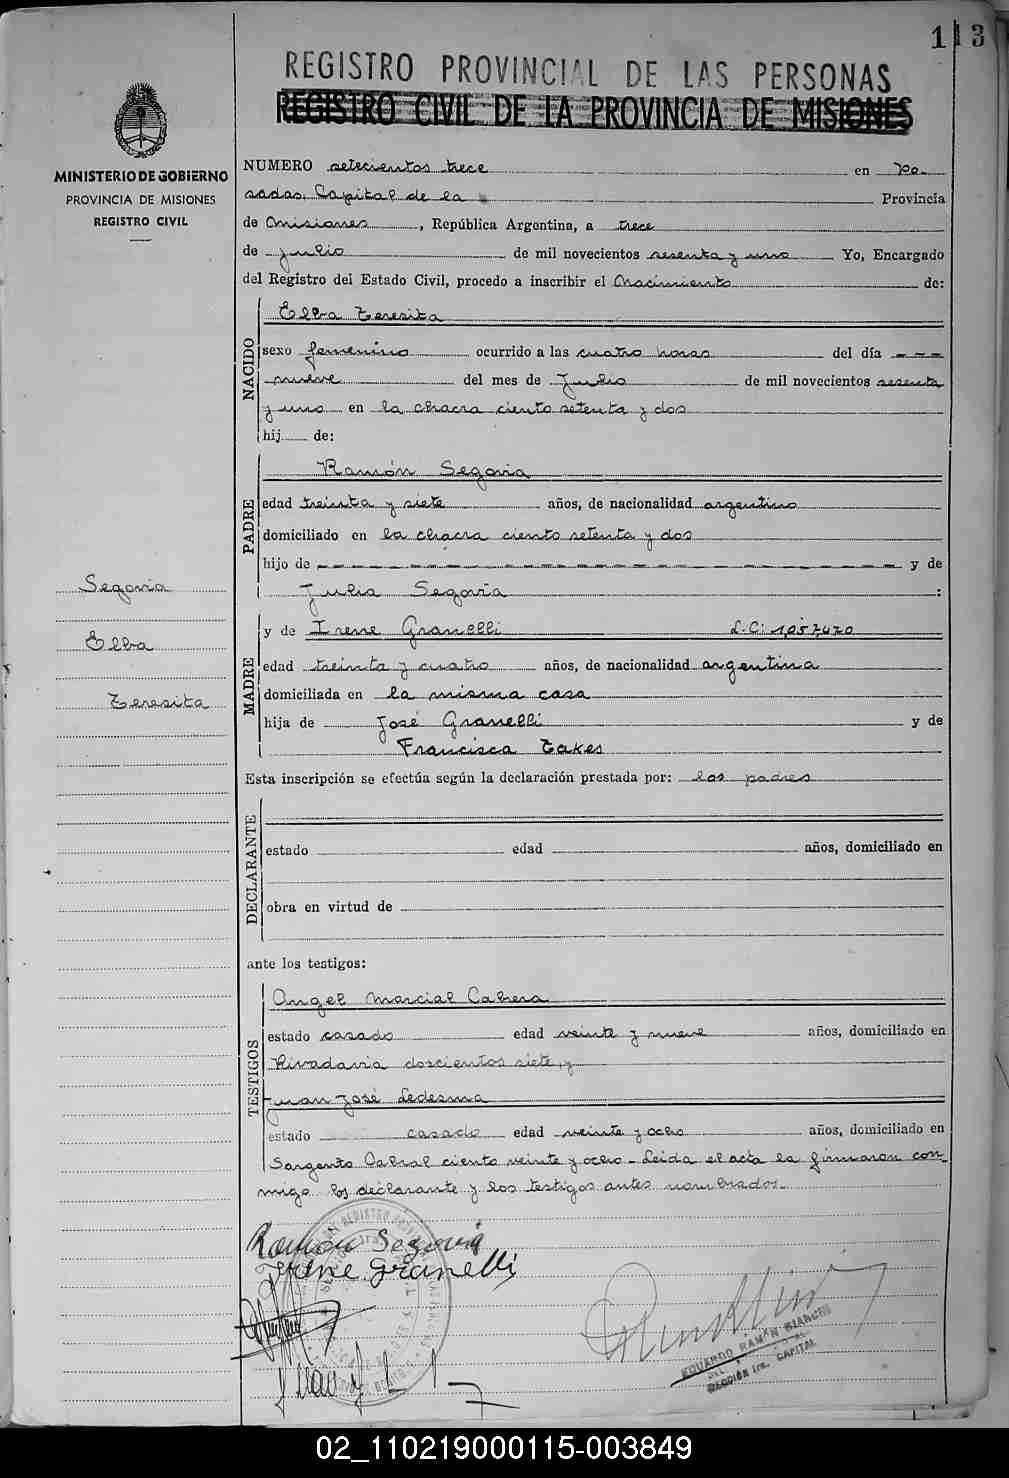 113
REGISTRO PROVINCIAL DE LAS PERSONAS
REGISTRO CIVIL DE LA PROVINCIA DE MISIONES
MINISTERIO DE GOBIERNO
PROVINCIA DE MISIONES
REGISTRO CIVIL
NUMERO setecientos trece en Po-
sadas, Capital de la Provincia
de Misiones, República Argentina, a trece
de julio de mil novecientos sesenta y uno Yo, Encargado
del Registro del Estado Civil, procedo a inscribir el Nacimiento de:
NACIDO
Elba Teresita
sexo femenino ocurrido a las cuatro horas del día
nueve del mes de Julio de mil novecientos sesenta
y uno en la chacra ciento setenta y dos
hij de:
PADRE
Ramón Segovia
edad treinta y siete años, de nacionalidad argentino
domiciliado en la chacra ciento setenta y dos
hijo de y de
Julia Segovia :
Segovia
Elba
Teresita
MADRE
y de Irene Granelli L.C: 1,057470
edad treinta y cuatro años, de nacionalidad argentina
domiciliada en la misma casa
hija de José Granelli y de
Francisca Takes
Esta inscripción se efectúa según la declaración prestada por: los padres
DECLARANTE
estado edad años, domiciliado en
obra en virtud de
ante los testigos:
TESTIGOS
Angel Marcial Cabrera
estado casado edad veinte y nueve años, domiciliado en
Rivadavia doscientos siete, y
Juan José Ledesma
estado casado edad veinte y ocho años, domiciliado en
Sargento Cabral ciento veinte y ocho - Leida el acta la firmaron con-
migo los declarante y los testigos antes nombrados.
Ramón Segovia
Irene Granelli
EDUARDO RAMÓN BIANCHI
SECCIÓN 1ra. CAPITAL
02_110219000115-003849